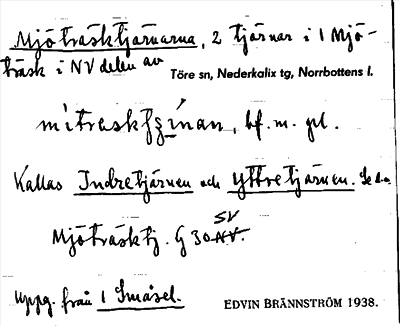 Mjöträsktjärnarna, 2 tjärnar i 1 Mjö-
träsk i NV delen av
Töre sn, Nederkalix tg, Norrbottens l.
bf. m. pl.
Kallas Indretjärnen och Yttretjärnen. Se d.o.
SV
Mjöträsktj. G 30 NV.
Uppg. från 1 Småsel.
EDVIN BRÄNNSTRÖM 1938.